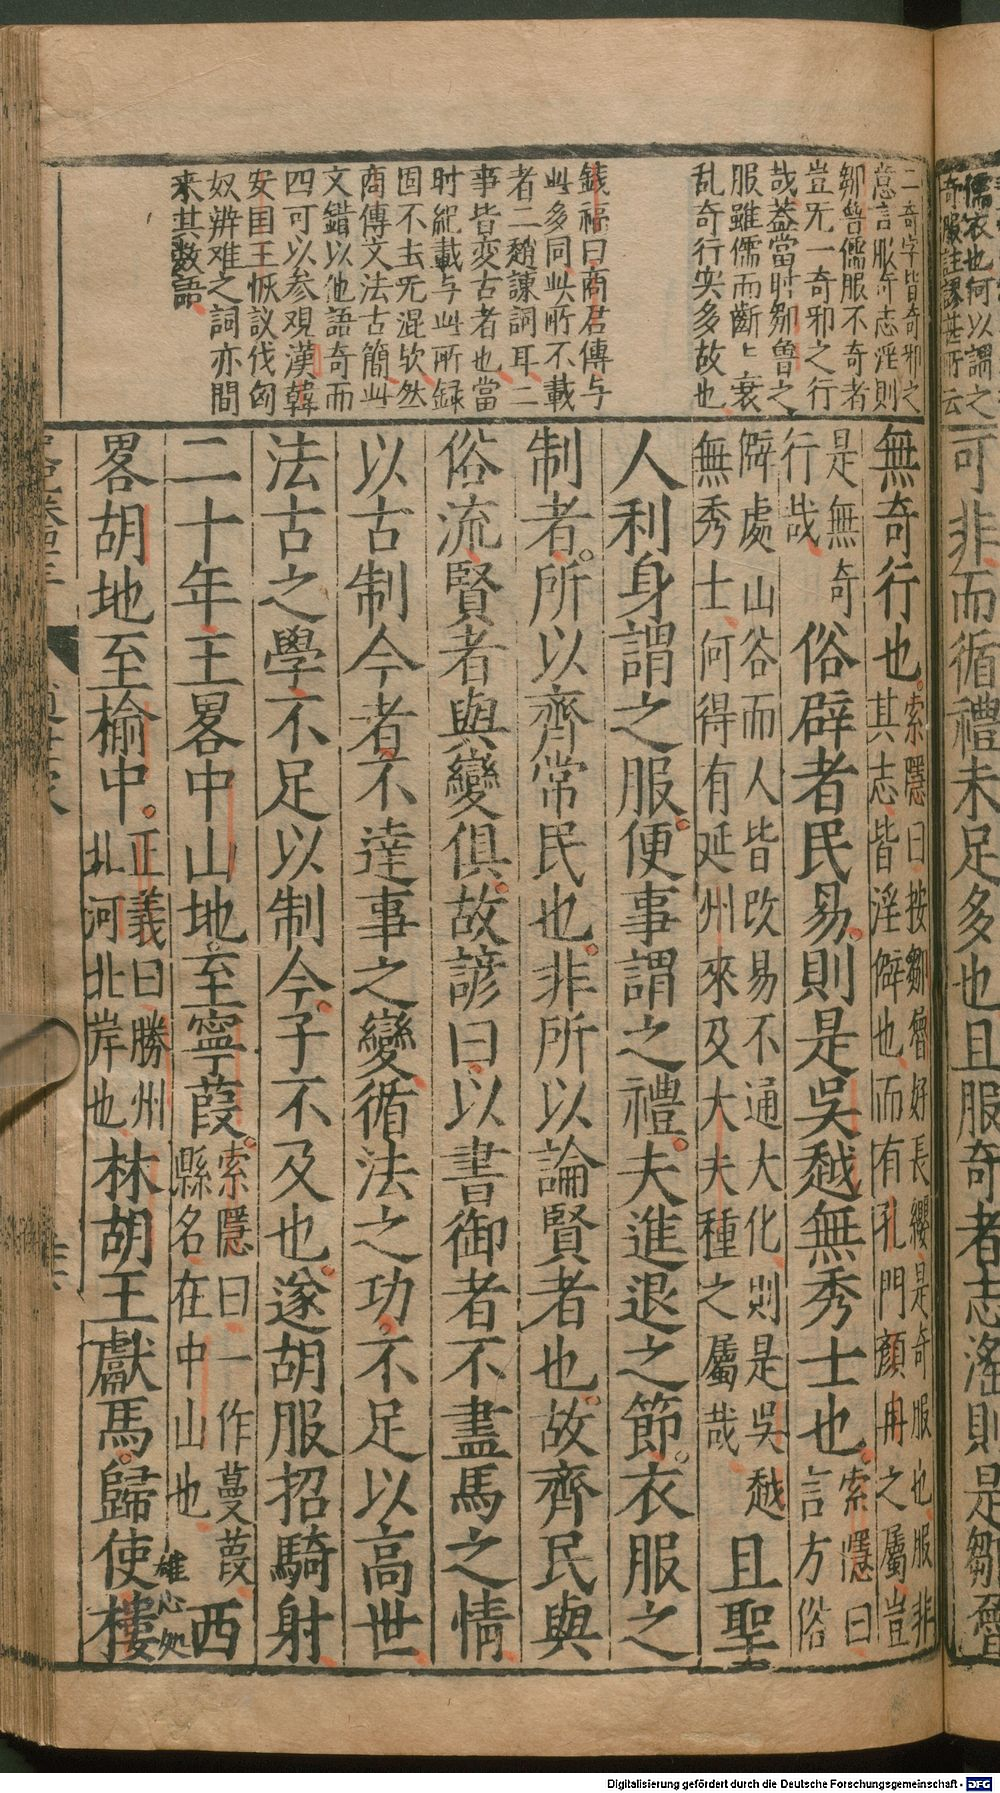 可非而循禮未足多也且服奇者志淫則是鄒魯
無奇行也索隱曰按鄒魯好長纓是奇服也服非其志皆淫僻也而有孔門顏冉之屬豈
是無奇行哉俗辟者民易則是吳越無秀士也索隱曰言方俗
僻處山谷而人皆改易不通大化則是吳越無秀士何得有延州來及大夫種之屬哉且聖
人利身謂之服便事謂之禮夫進退之節衣服之
制者所以齊常民也非所以論賢者也故齊民與
俗流賢者與變俱故諺曰以書御者不盡馬之情
以古制今者不達事之變循法之功不足以高世
法古之學不足以制今子不及也遂胡服招騎射
二十年王畧中山地至寧葭索隱曰一作蔓葭縣名在中山也西
畧胡地至榆中正義曰勝州北河北岸也林胡王獻馬歸使樓
雄心処
儒衣也何以謂之
奇服註謬甚所云
二奇字皆奇邪之
意言服奇志淫則
鄒魯儒服不奇者
豈旡一奇邪之行
哉葢當时鄒魯之
服雖儒而斷〻衰
乱奇行实多故也
錢福曰商君傳与
此多同此所不載
者二趙諫詞耳二
事皆变古者也當
时紀載与此所録
固不去旡混欤然
商傳文法古簡此
文錯以他語奇而
四可以参观漢韓
安国王恢議伐匈
奴辨难之詞亦間
来其数語
Digitalisierung gefördert durch die Deutsche Forschungsgemeinschaft - DFG